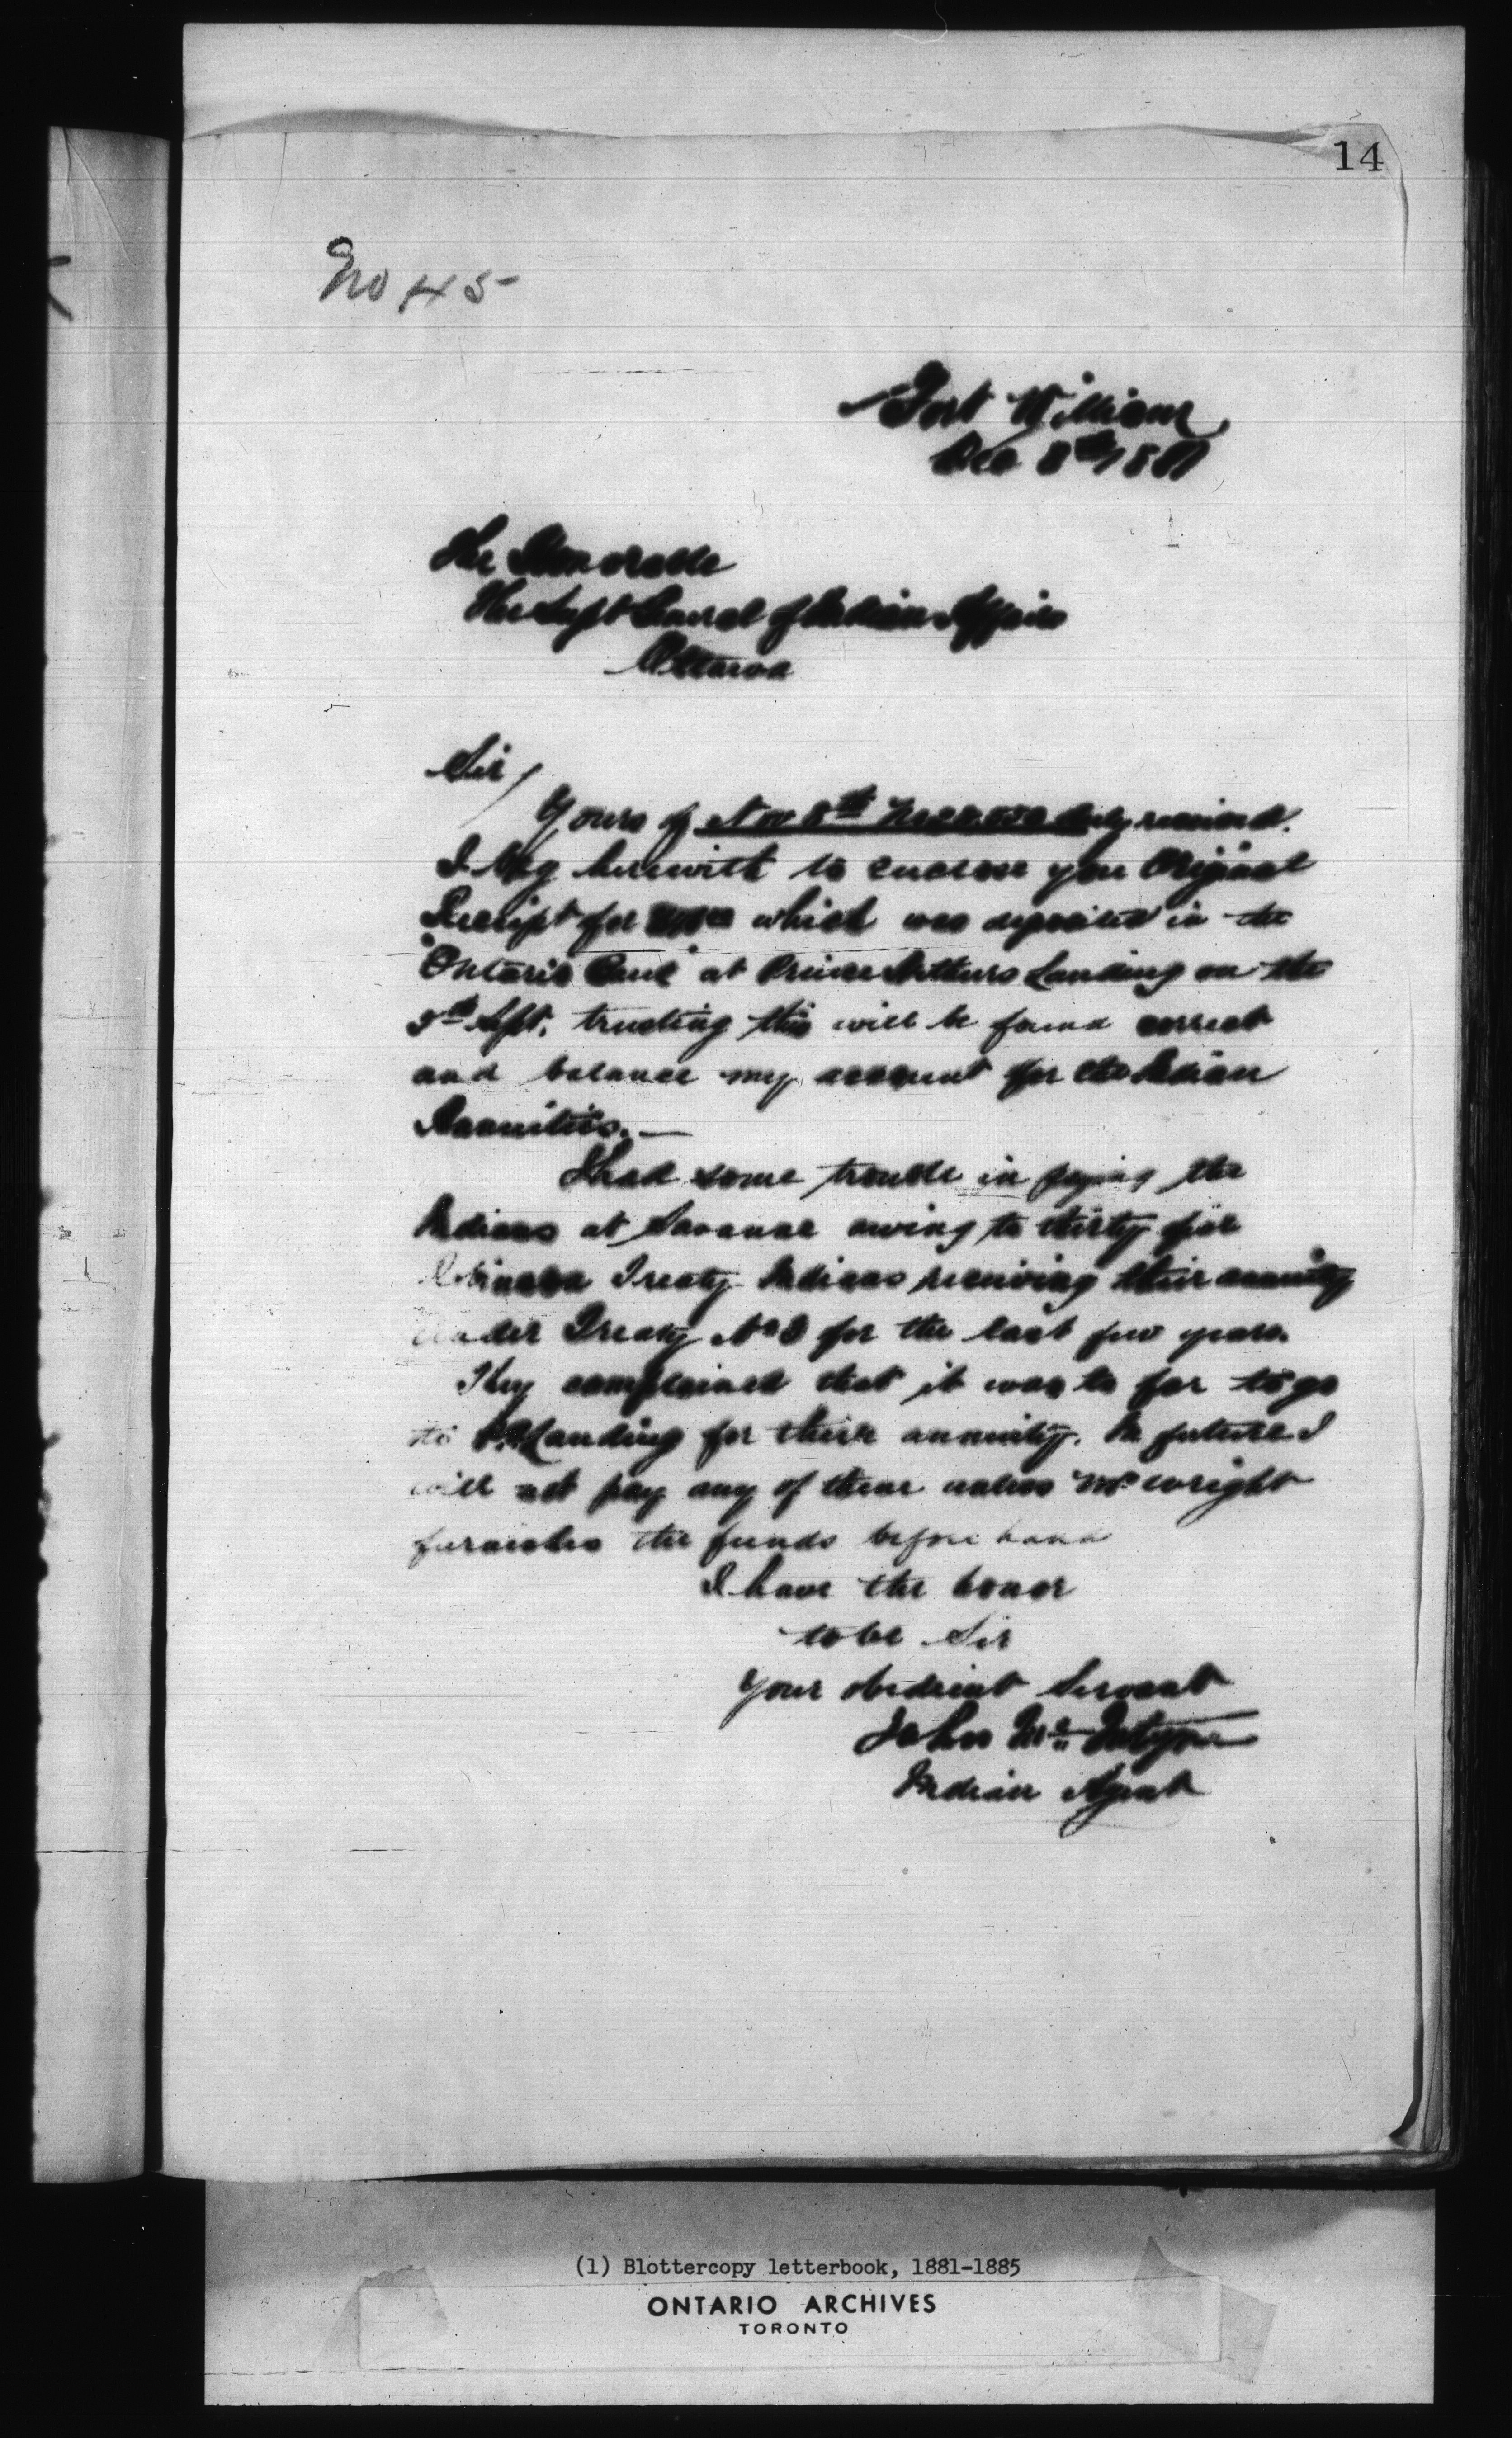 14
No 45
Fort William
Dec 8th 1881
The Honorable
The Supt General of Indian Affairs
Ottawa
Sir/
Yours of Nov 8th duly received.
I beg herewith to enclose you Original
Receipt for which was deposited in the
"Ontario Bank" at Prince Arthurs Landing on the
Sept. trusting this will be found correct
and balance my account for the Indian
Annuities.—
I had some trouble in paying the
Indians at Savanne owing to thirty five
Robinson Treaty Indians receiving their annuity
under Treaty No 3 for the last few years.
They complained that it was to far to go
to P.A Landing for their annuity. In future I
will not pay any of them unless Mr Wright
furnishes the funds before hand
I have the honor
to be Sir
Your obedient Servant
John McIntyre
Indian Agent
(1) Blottercopy letterbook, 1881-1885
ONTARIO ARCHIVES
TORONTO